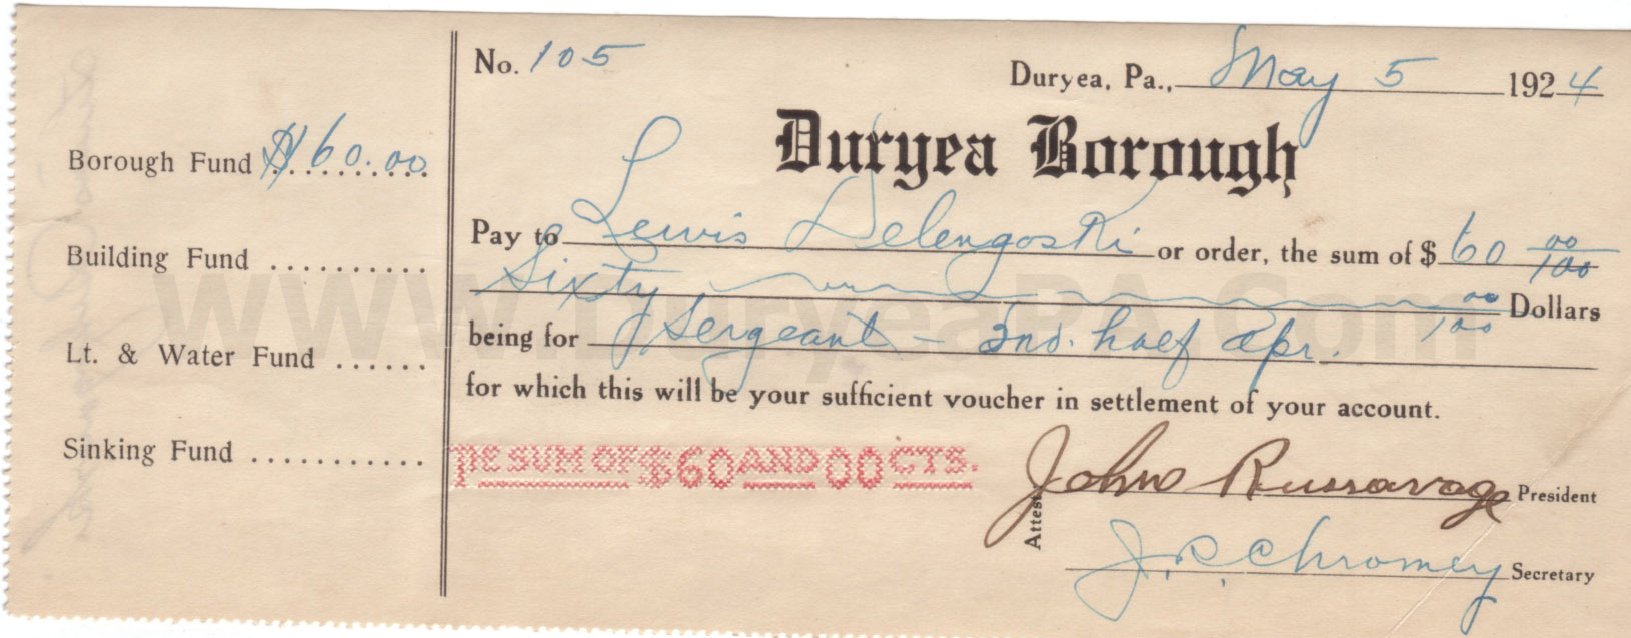 No. 105
Duryea, Pa., May 5 1924
Duryea Borough
Borough Fund $60.00
Pay to Lewis Delengoski or order, the sum of $ 60 00/100
Building Fund ..........
Sixty 00/100 Dollars
being for Sergeant - 2nd. half Apr.
Lt. & Water Fund ......
for which this will be your sufficient voucher in settlement of your account.
Sinking Fund ............
THE SUM OF $60 AND 00 CTS.
Attest
John Russavage President
J. P. Chromey Secretary
www.DuryeaPA.com